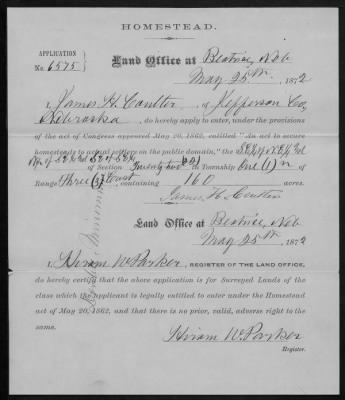 HOMESTEAD.
APPLICATION
No. 6575
Land Office at Beatrice, Neb
May 25th, 1872
I, James H. Coulter, of Jefferson Co,
Nebraska, do hereby apply to enter, under the provisions
of the act of Congress approved May 20, 1862, entitled "An act to secure
homesteads to actual settlers on the public domain," the
of Section Twenty two (22) in Township One (1) n of
Range three (3) East, containing 160 acres.
James H. Coulter
Land Office at Beatrice, Neb
May 25th, 1872
I, Hiram W. Parker, REGISTER OF THE LAND OFFICE,
do hereby certify that the above application is for Surveyed Lands of the
class which the applicant is legally entitled to enter under the Homestead
act of May 20, 1862, and that there is no prior, valid, adverse right to the
same.
Hiram W. Parker
Register.